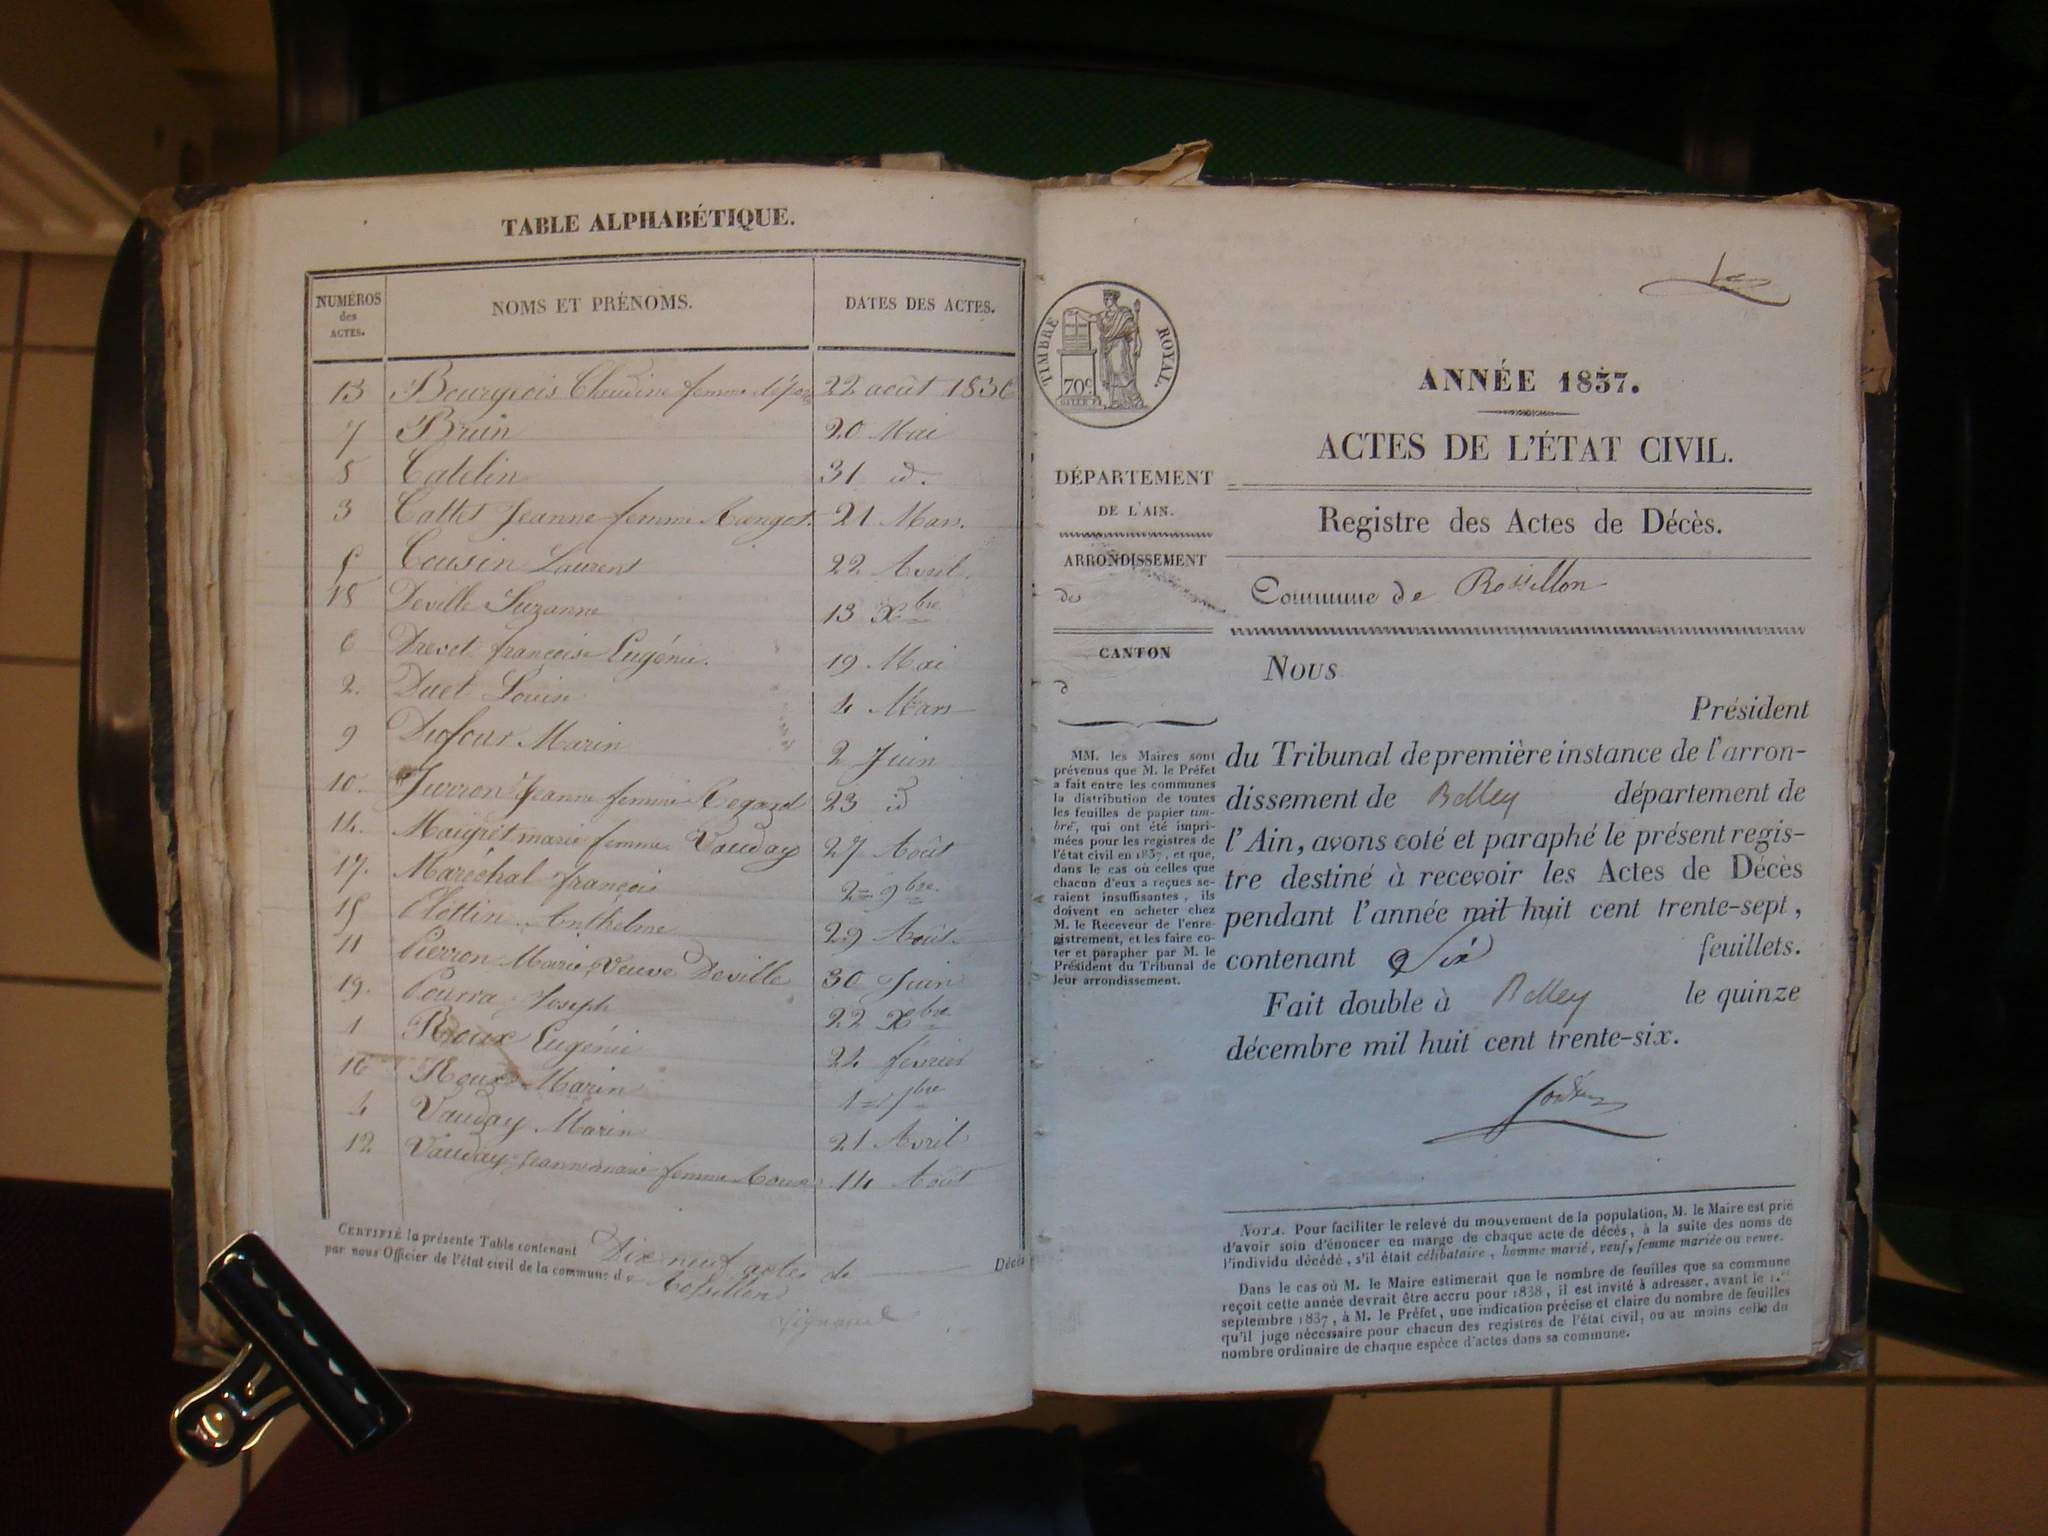 TABLE ALPHABÉTIQUE.
NUMÉROS des ACTES. NOMS ET PRÉNOMS. DATES DES ACTES.
13 Bourgeois Claudine femme 22 août 1836
7 Bruin 20 Mai
8 Catelin 31 d.
3 Jeanne femme 21 Mars.
5 Cousin Laurent 22 Avril.
18 Deville Suzanne 13 Xbre
6 Drevet françoise Eugénie. 19 Mai
2. Duet Louise 4 Mars
9 Dufour Marin 2 Juin
10. Jeanne femme 23 d
14. Maigret marie femme Vauday 27 Août
17. Maréchal françois 2 = 9bre
15 Anthelme 29 Août.
11 Pierron Marie, Veuve Deville 30 Juin
19. Pourra Joseph 22 Xbre
1 Roux Eugénie 24 février
16 Roux Marin 1 = 7bre
4 Vauday Marin 21 Avril
12 Vauday Jeanne marie femme 14 Août
CERTIFIÉ la présente Table contenant Dix neuf actes de Décès
par nous Officier de l'état civil de la commune de Rossillon
TIMBRE ROYAL.
70c
DÉPARTEMENT
DE L'AIN.
ARRONDISSEMENT
de
CANTON
d
MM. les Maires sont
prévenus que M. le Préfet
a fait entre les communes
la distribution de toutes
les feuilles de papier tim-
bré, qui ont été impri-
mées pour les registres de
l'état civil en 1837, et que,
dans le cas où celles que
chacun d'eux a reçues se-
raient insuffisantes, ils
doivent en acheter chez
M. le Receveur de l'enre-
gistrement, et les faire co-
ter et parapher par M. le
Président du Tribunal de
leur arrondissement.
ANNÉE 1837.
ACTES DE L'ÉTAT CIVIL.
Registre des Actes de Décès.
Commune de Rossillon
Nous
Président
du Tribunal de première instance de l'arron-
dissement de Belley département de
l'Ain, avons coté et paraphé le présent regis-
tre destiné à recevoir les Actes de Décès
pendant l'année mil huit cent trente-sept,
contenant Six feuillets.
Fait double à Belley le quinze
décembre mil huit cent trente-six.
NOTA. Pour faciliter le relevé du mouvement de la population, M. le Maire est prié
d'avoir soin d'énoncer en marge de chaque acte de décès, à la suite des noms de
l'individu décédé, s'il était célibataire, homme marié, veuf, femme mariée ou veuve.
Dans le cas où M. le Maire estimerait que le nombre de feuilles que sa commune
reçoit cette année devrait être accru pour 1838, il est invité à adresser, avant le 1.er
septembre 1837, à M. le Préfet, une indication précise et claire du nombre de feuilles
qu'il juge nécessaire pour chacun des registres de l'état civil, ou au moins celle du
nombre ordinaire de chaque espèce d'actes dans sa commune.